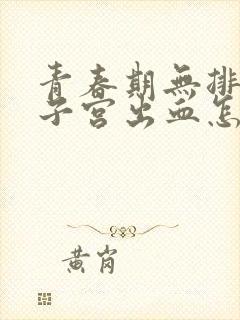 青春期無排
子宮出血怎
黄岗